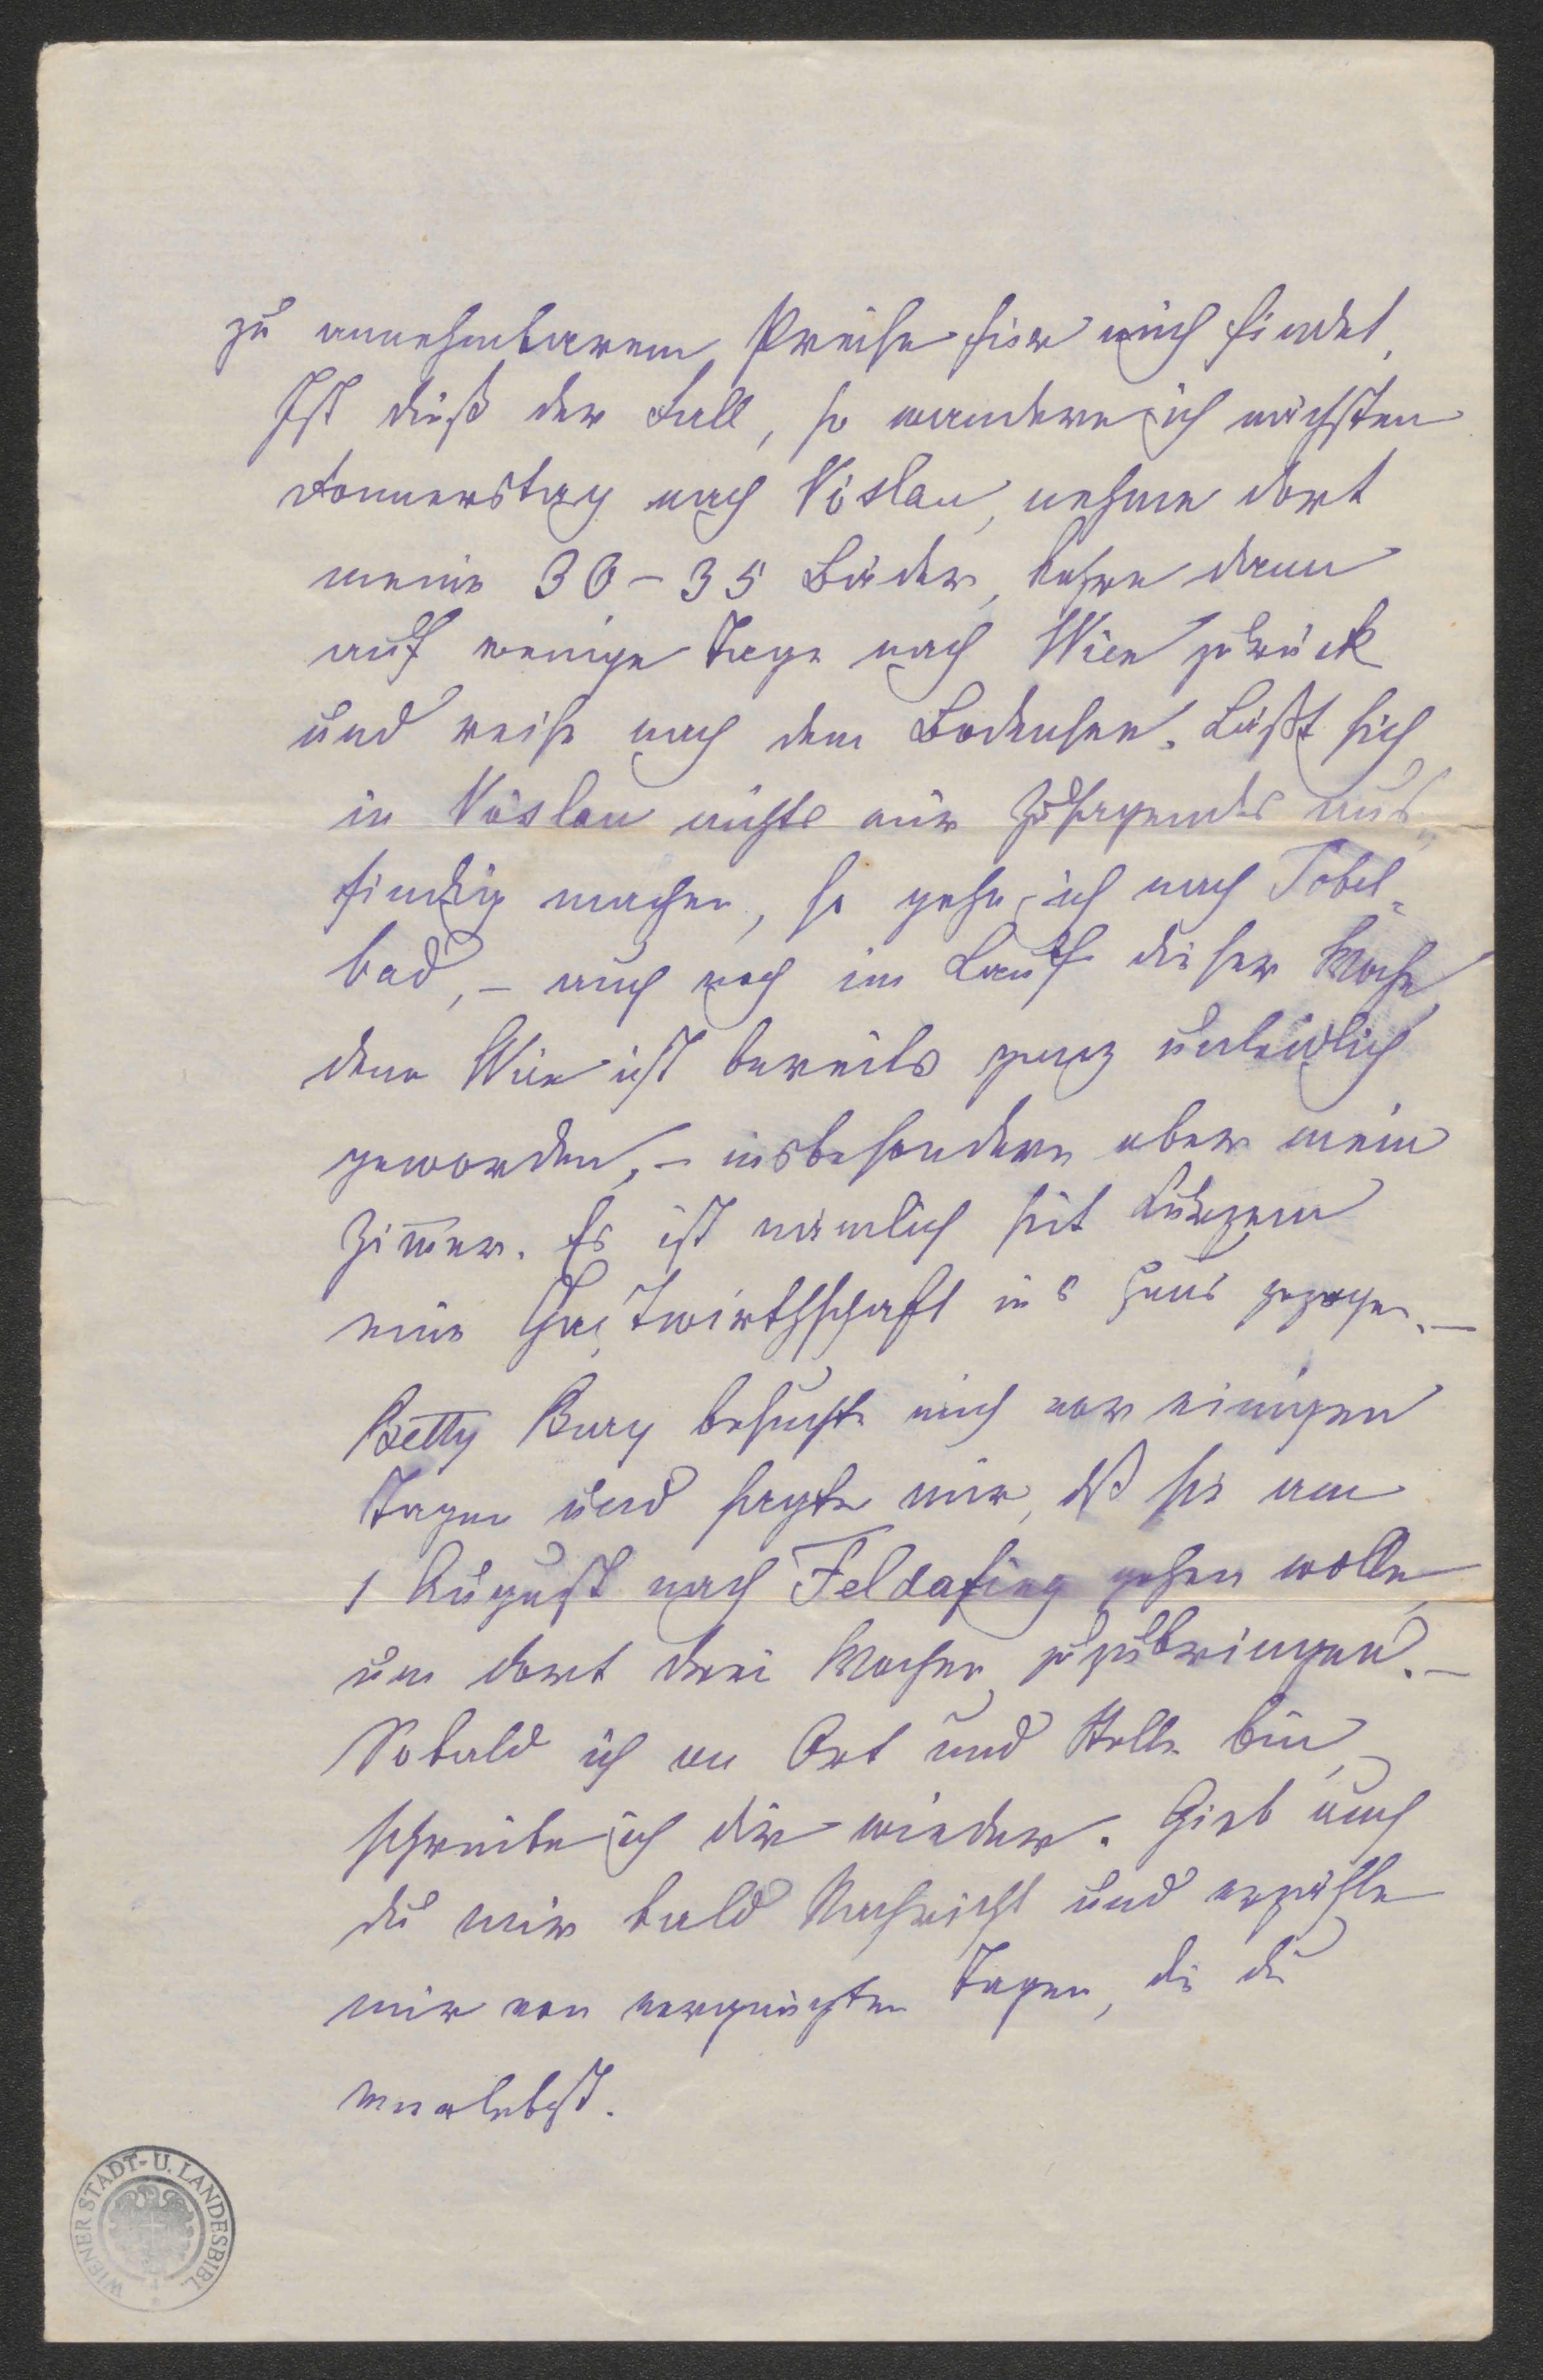 zu annehmbarem Preise für mich findet.
Ist dieß der Fall, so wandere ich nächsten
Donnerstag nach Vöslau, nehme dort
meine 30-35 Bäder, kehre dann
auf wenige Tage nach Wien zurück
und reise nach dem Bodensee. Läßt sich
in Vöslau nichts mir Zusagendes aus-
findig machen, so gehe ich nach Tobel-
bad, - auch noch im Lauf dieser Woche
denn Wien ist bereits ganz unleidlich
geworden, - insbesondere aber mein
Zim̅er. Es ist nämlich seit Kurzem
eine Gastwirthschaft in's Haus gezogen. -
Betty Bury besuchte mich vor einigen
Tagen und sagte mir, dß sie am
1 August nach Feldafing gehen wolle
um dort drei Wochen zuzubringen. -
Sobald ich an Ort und Stelle bin,
schreibe ich dir wieder. Gieb auch
du mir bald Nachricht und erzähle
mir von vergnügten Tagen, die du
verlebst.
WIENER STADT- U. LANDESBIBL.